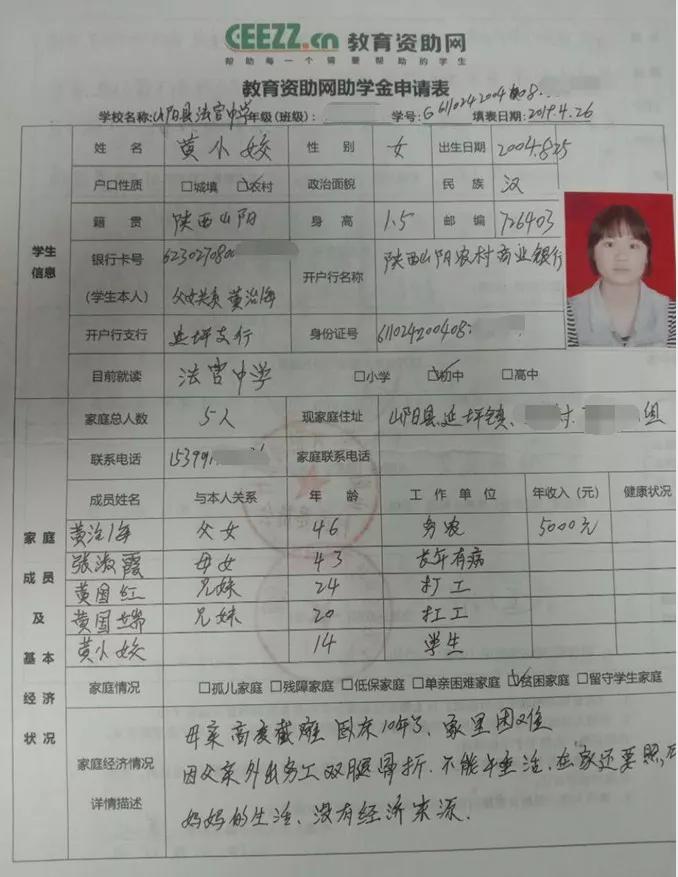 CEEZZ.cn 教育资助网
帮助每一个需要帮助的学生
教育资助网助学金申请表
学校名称:山阳县法官中学 年级(班级): 学号: G61102420040808... 填表日期: 2019.4.26
学生信息
姓名 黄小姣 性别 女 出生日期 2004.8.25
户口性质 □城填 ☑农村 政治面貌 民族 汉
籍贯 陕西山阳 身高 1.5 邮编 726403
银行卡号 (学生本人) 623027080 开户行名称 陕西山阳农村商业银行
父女关系 黄治
开户行支行 延坪支行 身份证号 611024200408
目前就读 法官中学 □小学 ☑初中 □高中
家庭成员及基本经济状况
家庭总人数 5人 现家庭住址 山阳县延坪镇 村 组
联系电话 15399 家庭联系电话
成员姓名 与本人关系 年龄 工作单位 年收入(元) 健康状况
黄治 父女 46 务农 5000元
张淑霞 母女 43 长年有病
黄国红 兄妹 24 打工
黄国 兄妹 20 打工
黄小姣 14 学生
家庭情况 □孤儿家庭 □残障家庭 □低保家庭 □单亲困难家庭 ☑贫困家庭 □留守学生家庭
家庭经济情况详情描述
母亲高度截瘫 卧床10年了、家里困难
因父亲外出务工双腿骨折.不能干重活、在家还要照
妈妈的生活、没有经济来源.